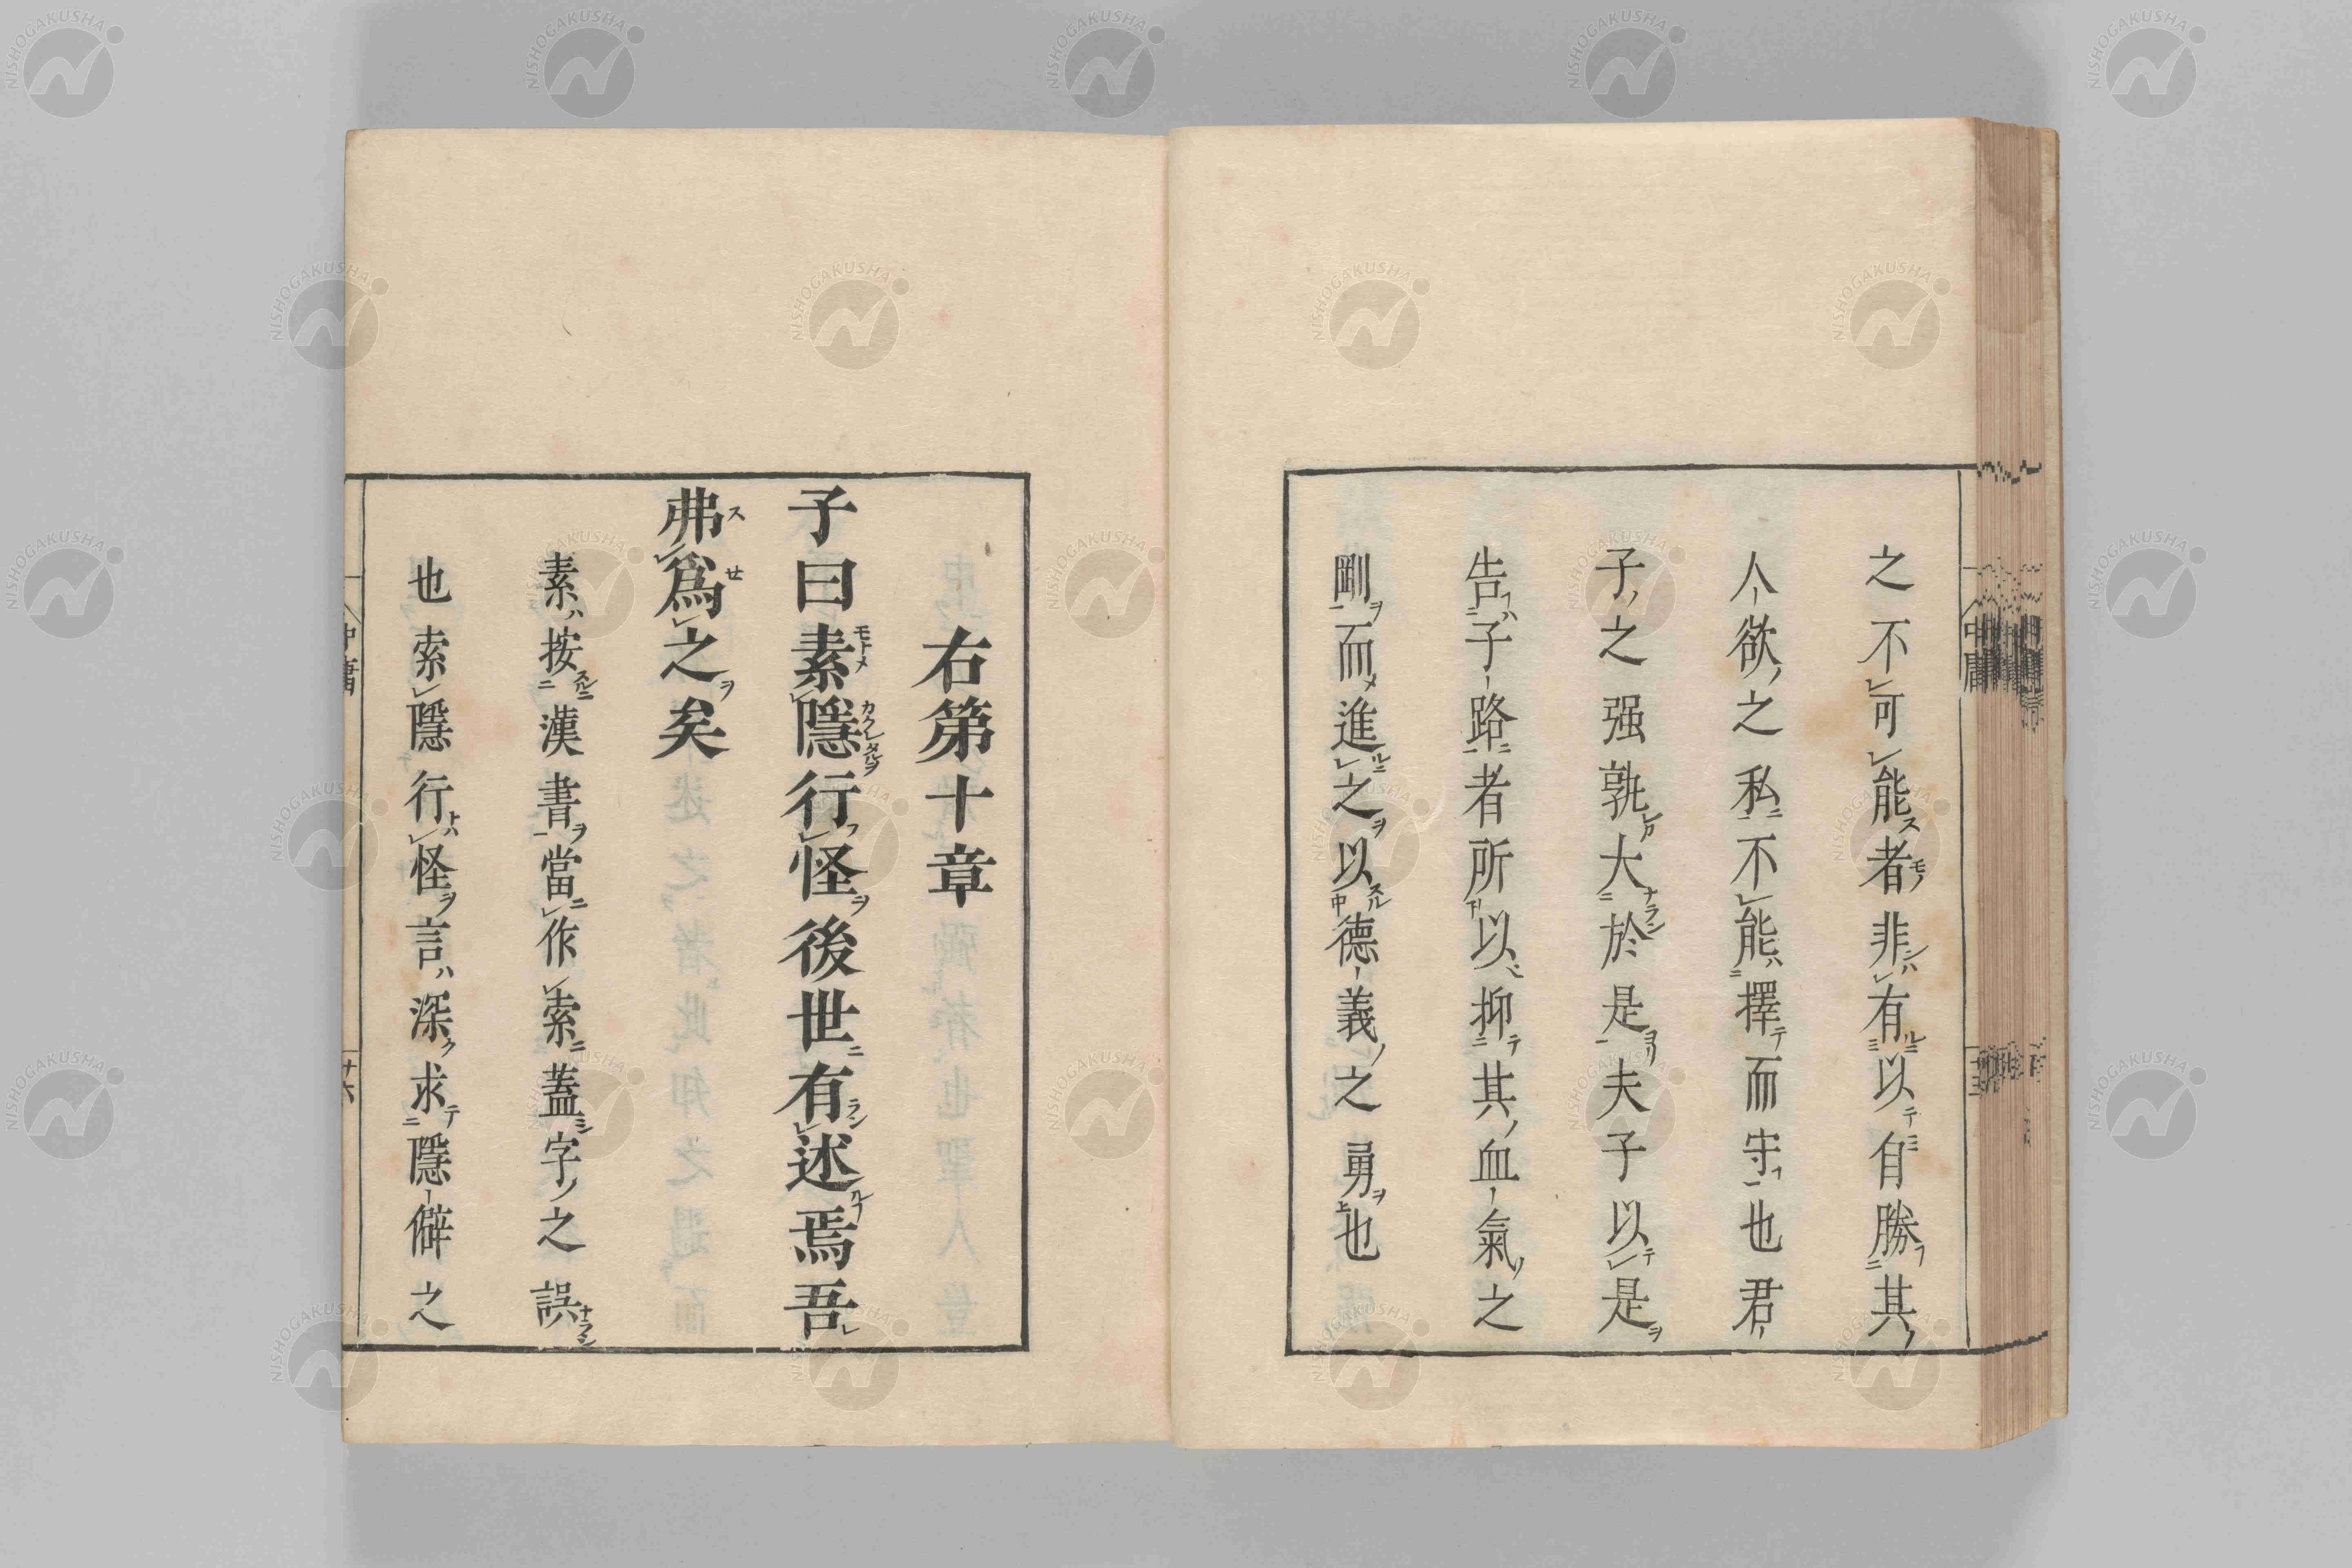 之不可能者非有以自勝其
人欲之私不能擇而守也君
子之强孰大於是夫子以是
告子路者所以抑其血氣之
剛而進之以德義之勇也
右第十章
子曰素隱行怪後世有述焉吾
弗爲之矣
素按漢書當作索蓋字之誤
也索隱行怪言深求隱僻之
中庸
十六
NISHOGAKUSHA